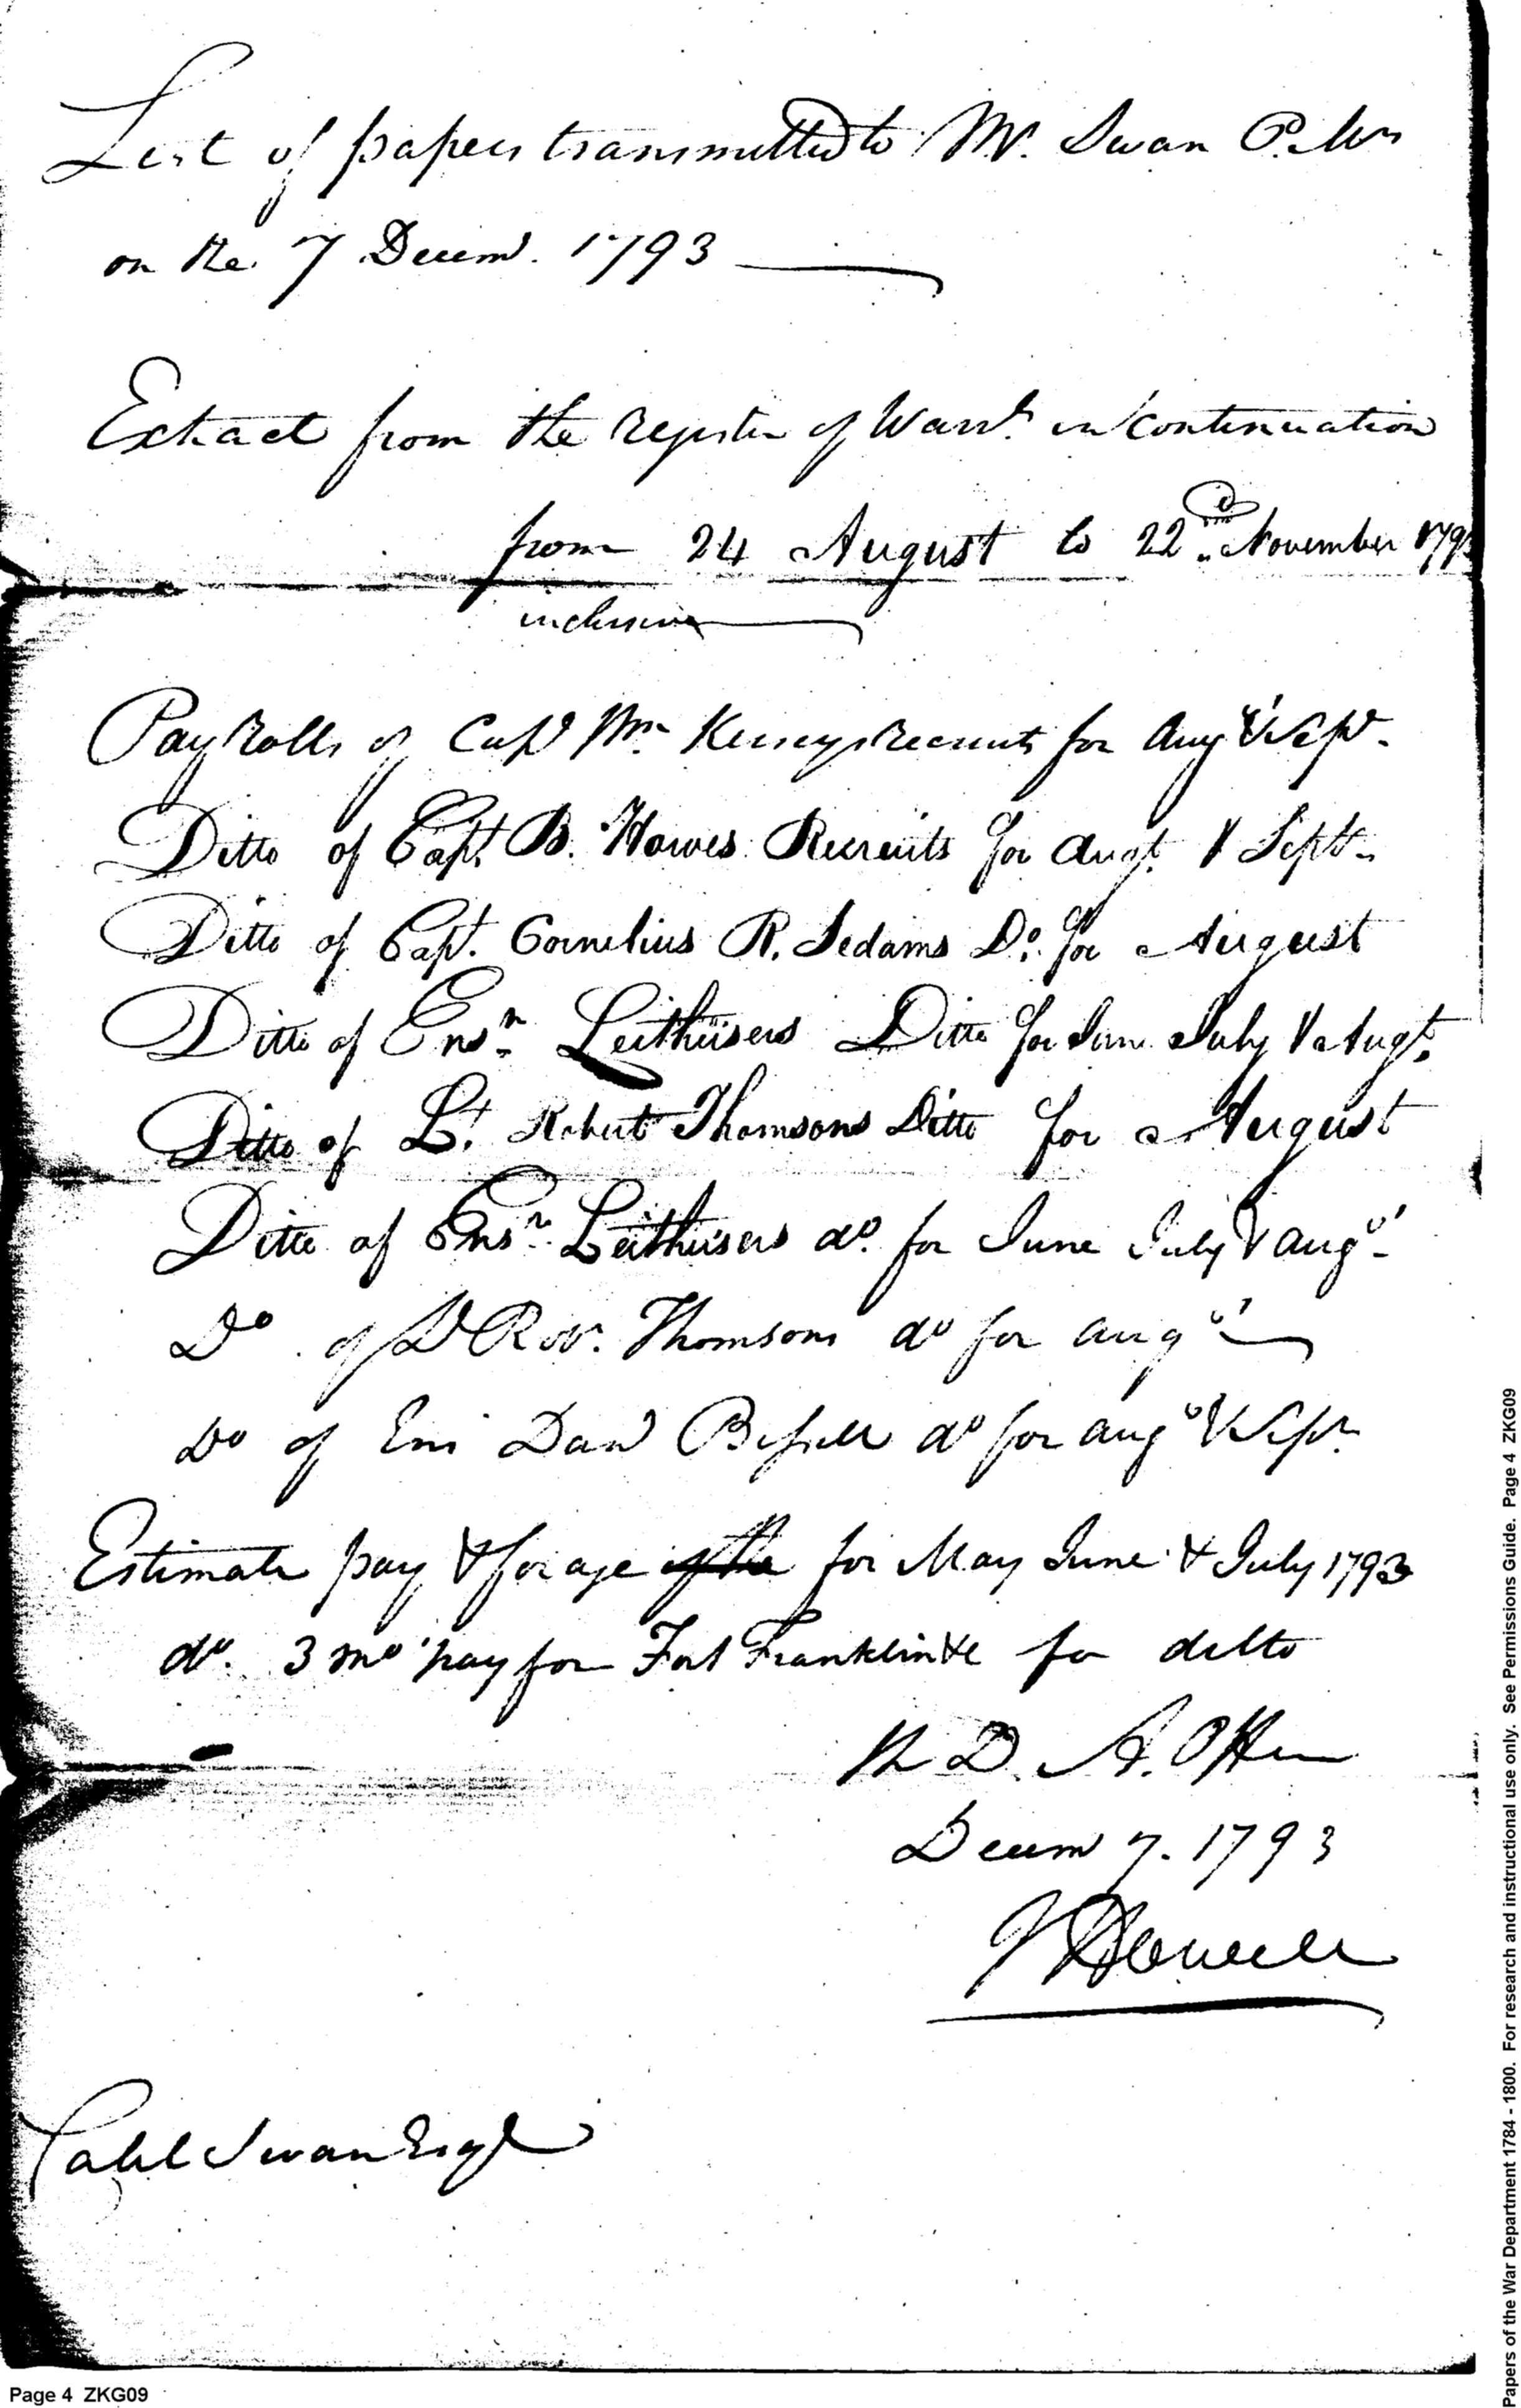 List of papers transmitted to Mr. Swan P. Mr
on the 7 Decemr. 1793
Extract from the register of Warrts. in Continuation
from 24 August to 22d. November 1793
inclusive
Pay Rolls of Capt Wm Kerseys Recruits for Augt & Sepr.
Ditto of Capt. B. Howes Recruits for Augt. & Sept.
Ditto of Capt. Cornelius R. Sedams Do. for August
Ditto of Ensn. Leithüsers Ditto for June July & Augt.
Ditto of Lt. Robert Thomsons Ditto for August
Ditto of Ensn. Leithüsers do. for June July & Augt.
Do. of Lt Rob. Thomsons do for Augt
Do of Ens Danl Bissell do for Augt & Sepr
Estimate pay & forage of the for May June & July 1793
do. 3 mo pay for Fort Franklin &c for ditto
W D. A. Office
Decem 7. 1793
J Howell
Caleb Swan Esqr
Page 4 ZKG09
Papers of the War Department 1784 - 1800. For research and instructional use only. See Permissions Guide. Page 4 ZKG09